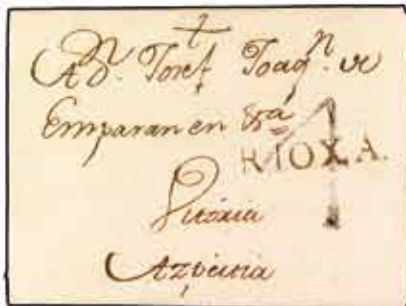 A Dn. Josef Joaqn. de
Emparan en
RIOXA.
Vitoria
Azpeitia